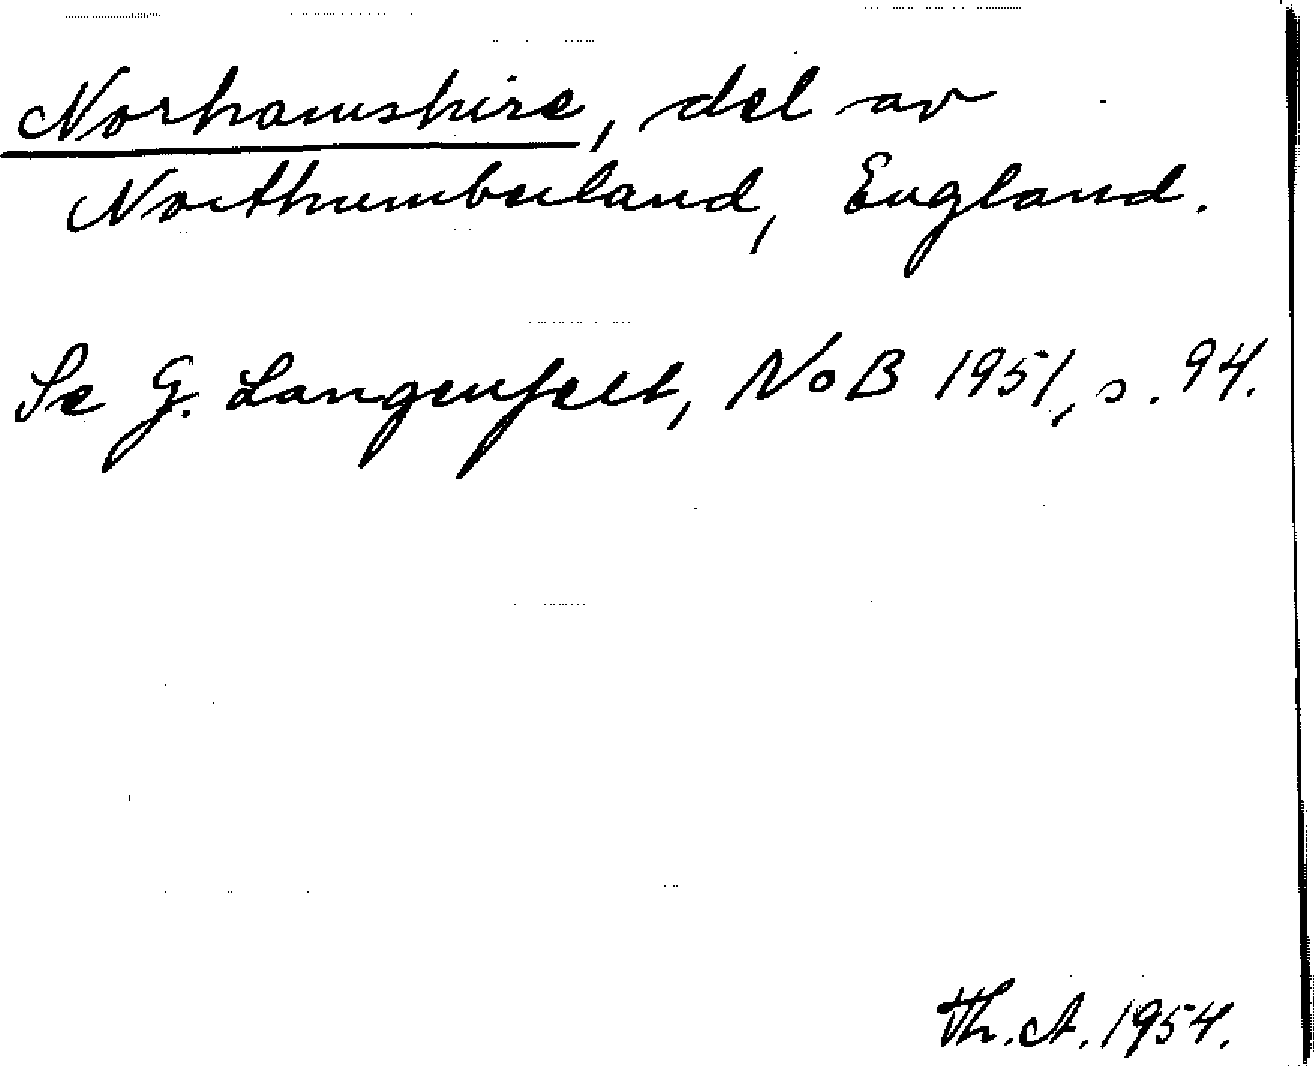 Norhamshire, del av
Northumberland, England.
Se G. Langenfelt, NoB 1951, s. 94.
Th. A. 1954.